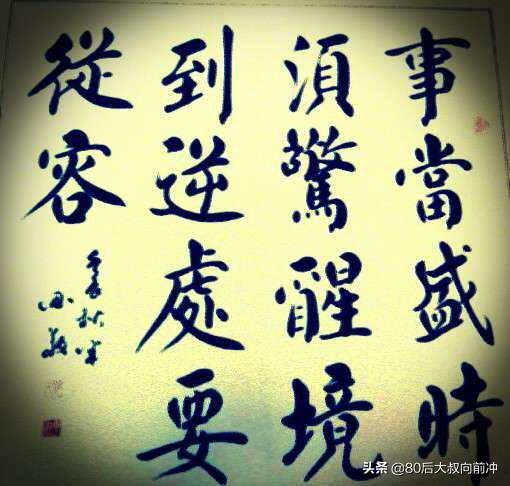 事當盛時
須驚醒境
到逆處要
從容
头条 @80后大叔向前冲